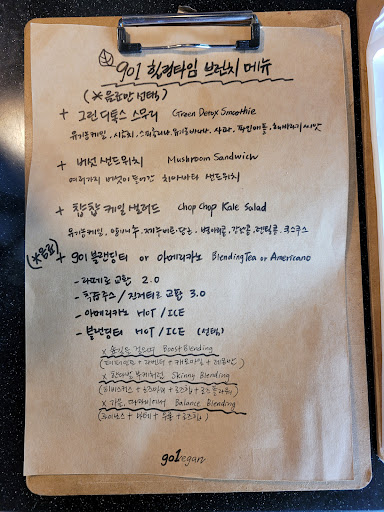 901 힐링타임 브런치 메뉴
(*음료만 선택)
+ 그린 디톡스 스무디 Green Detox Smoothie
유기농케일, 시금치, 스피루리나, 유기농바나나, 사과, 파인애플, 해바라기씨앗
+ 버섯 샌드위치 Mushroom Sandwich
여러가지 버섯이 들어간 치아바타 샌드위치
+ 찹찹 케일 샐러드 Chop Chop Kale Salad
유기농케일, 병아리콩, 강낭콩, 렌틸콩, 쿠스쿠스
(*음료) + 901 블랜딩티 or 아메리카노 Blending Tea or Americano
- 라떼로 교환 2.0
- 착즙주스 / 진저티로 교환 3.0
- 아메리카노 HOT / ICE
- 블랜딩티 HOT / ICE (선택)
x 숲길을 걸으며 Boost Blending
+ 라벤더 + 캐모마일 + 레몬밤)
x 한여름 Skinny Blending
(히비스커스 + 로즈마리 + 로즈힙 +
x Balance Blending
+ 로즈힙)
901vegan